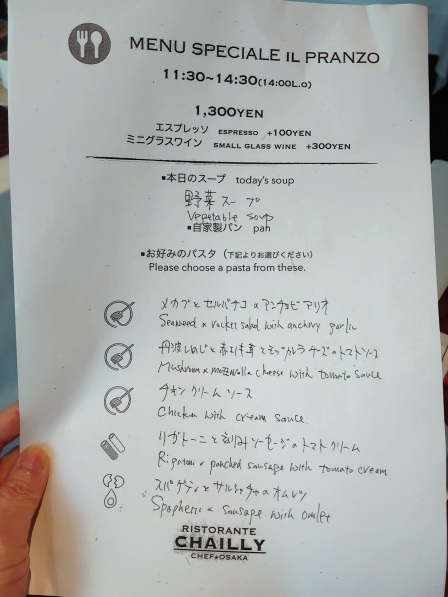 MENU SPECIALE IL PRANZO
11:30~14:30(14:00L.o)
1,300YEN
エスプレッソ ESPRESSO +100YEN
ミニグラスワイン SMALL GLASS WINE +300YEN
■本日のスープ today's soup
野菜スープ
Vegetable soup
■自家製パン pah
■お好みのパスタ (下記よりお選びください)
Please choose a pasta from these.
メカブとセルバチコのアンチョビアリオ
Seaweed × rocket salad with anchovy garlic
丹波しめじと モッツァレラチーズのトマトソース
Mushroom × mozzarella cheese with tomato sauce
チキンクリームソース
Chicken with cream sauce
リガトーニと刻みソーセージのトマトクリーム
Rigatoni × sausage with tomato cream
スパゲティとサルシッチャのオムレツ
Spaghetti × sausage with omlet
RISTORANTE
CHAILLY
CHEF★OSAKA